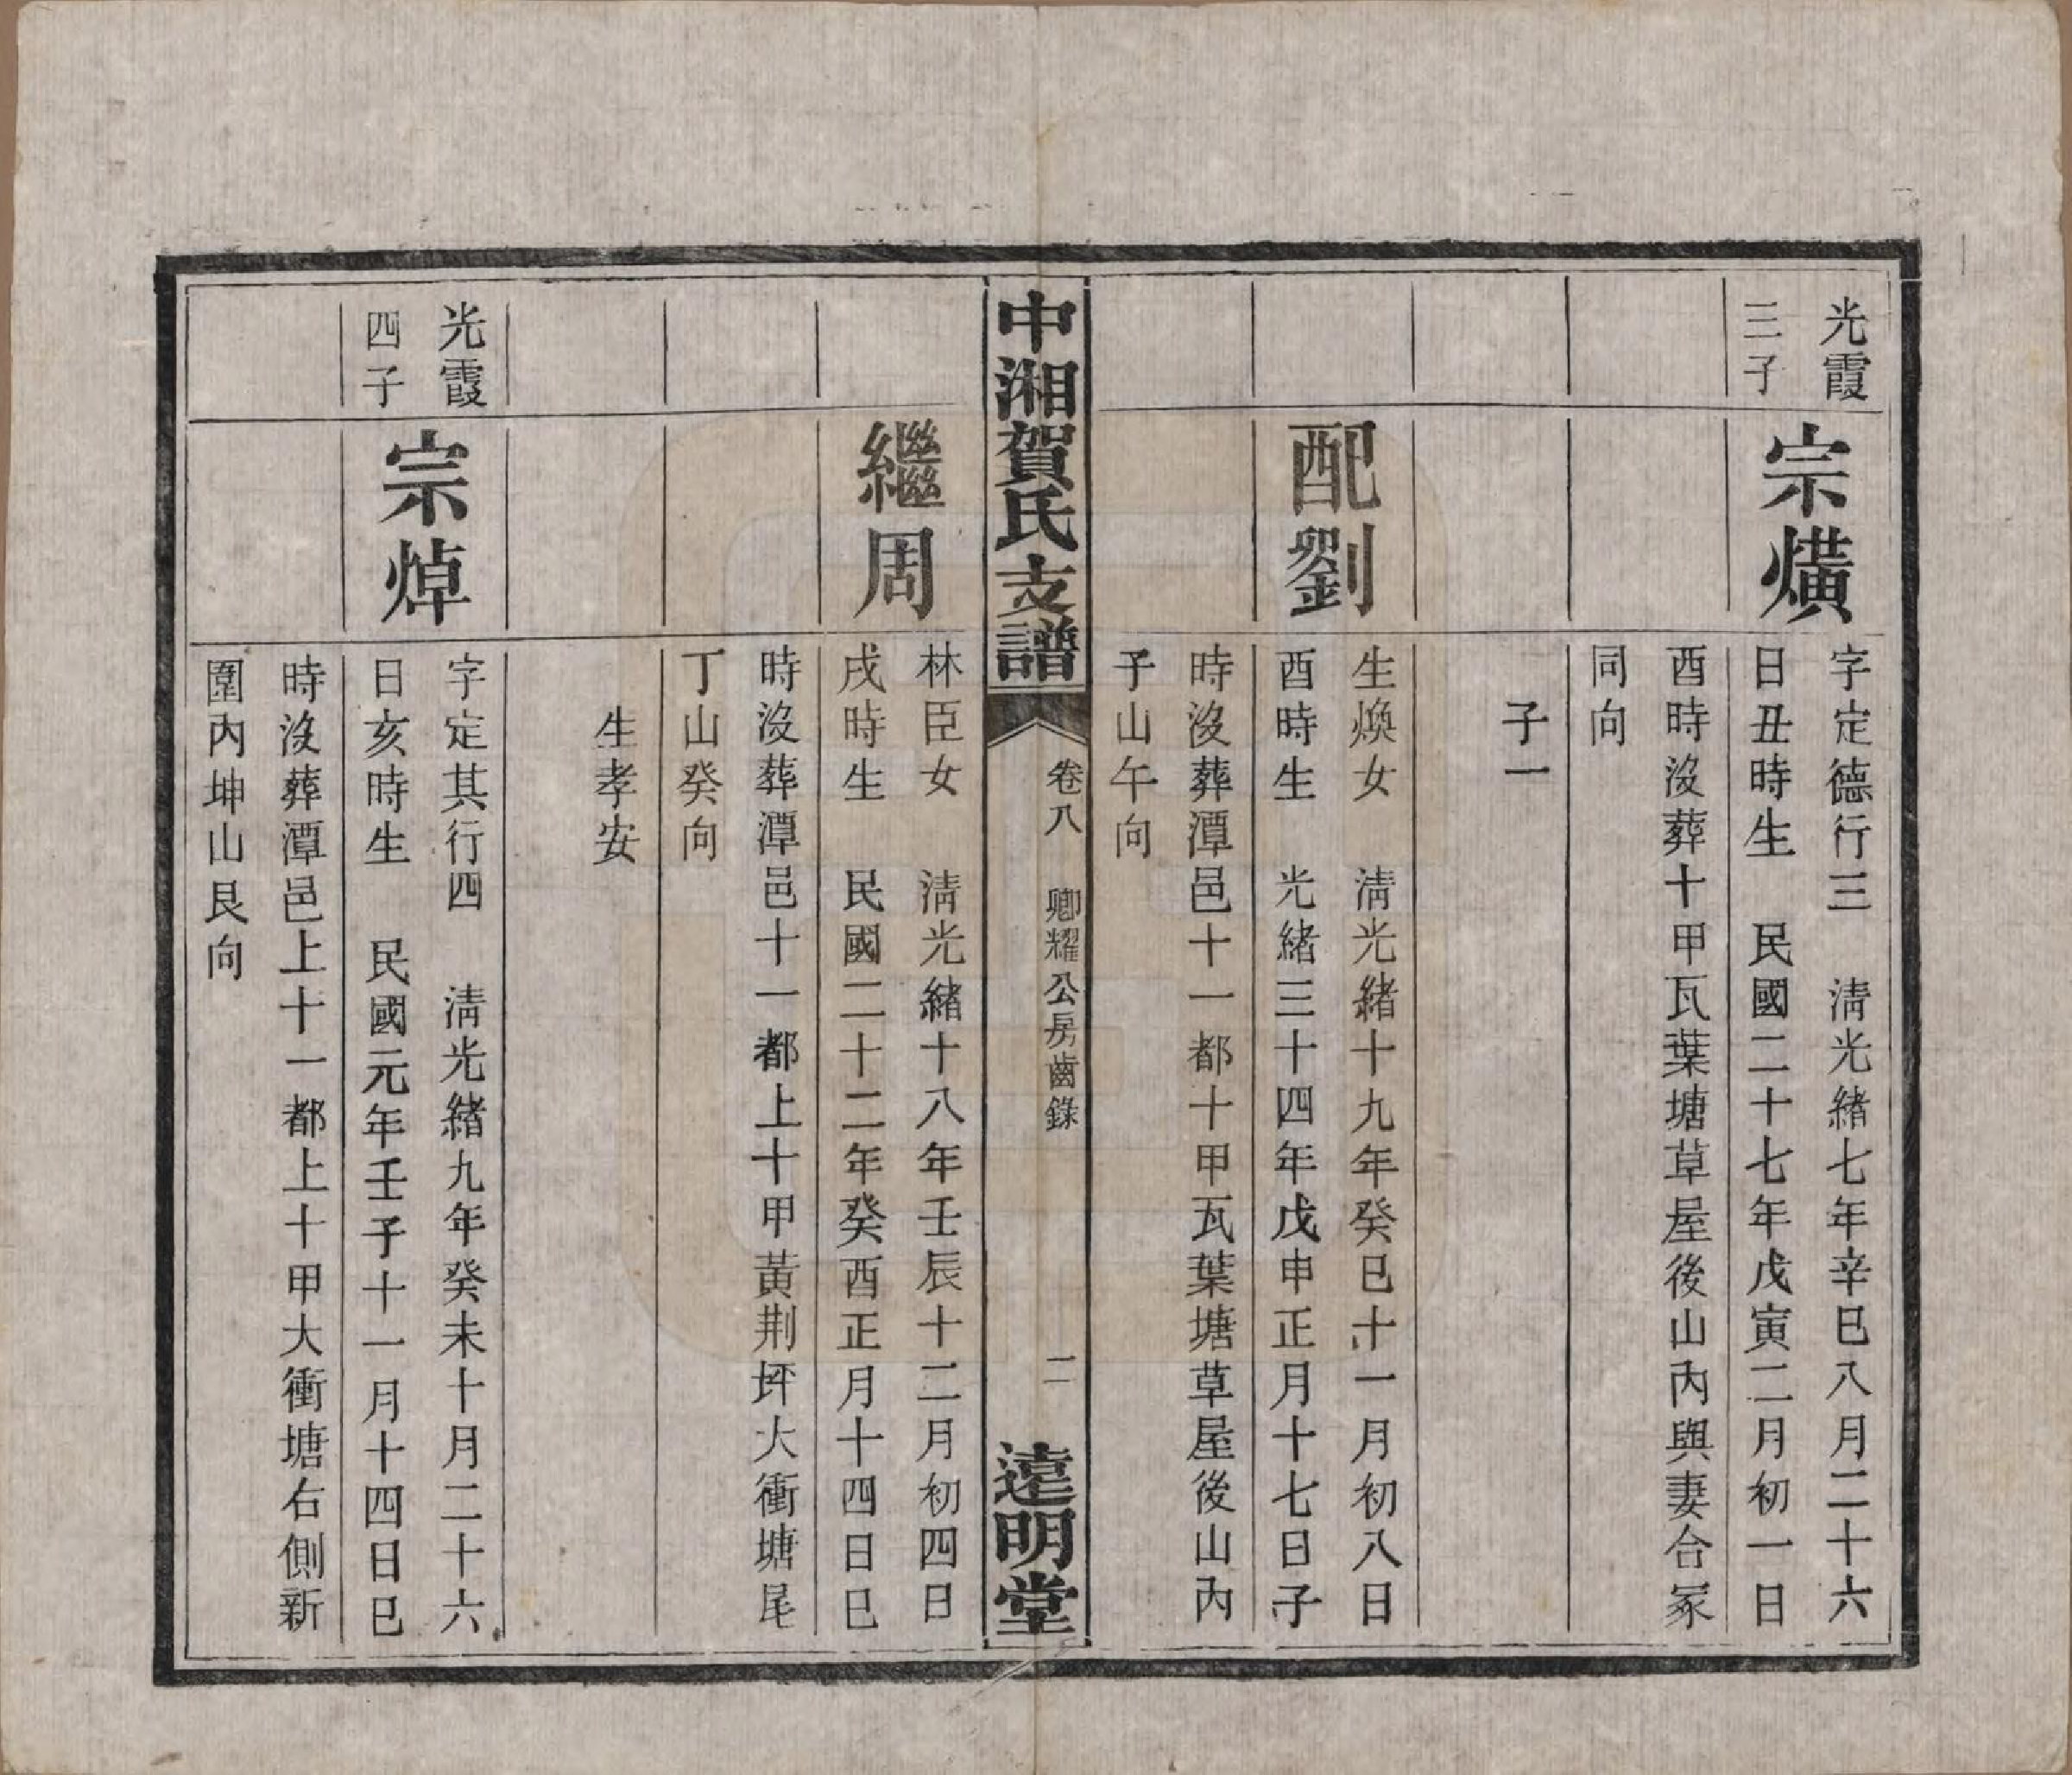 光霞
三子
宗熿
字定德行三　淸光緒七年辛巳八月二十六
日丑時生　民國二十七年戊寅二月初一日
酉時沒葬十甲瓦葉塘草屋後山內與妻合冢
同向
子一
配劉
生煥女　淸光緒十九年癸巳十一月初八日
酉時生　光緒三十四年戊申正月十七日子
時沒葬潭邑十一都十甲瓦葉塘草屋後山內
子山午向
中湘賀氏支譜
卷八　卿耀公房齒錄
二
遠明堂
繼周
林臣女　淸光緒十八年壬辰十二月初四日
戌時生　民國二十二年癸酉正月十四日巳
時沒葬潭邑十一都上十甲黃荆坪大衝塘尾
丁山癸向
生孝安
光霞
四子
宗焯
字定其行四　淸光緒九年癸未十月二十六
日亥時生　民國元年壬子十一月十四日巳
時沒葬潭邑上十一都上十甲大衝塘右側新
圍內坤山艮向